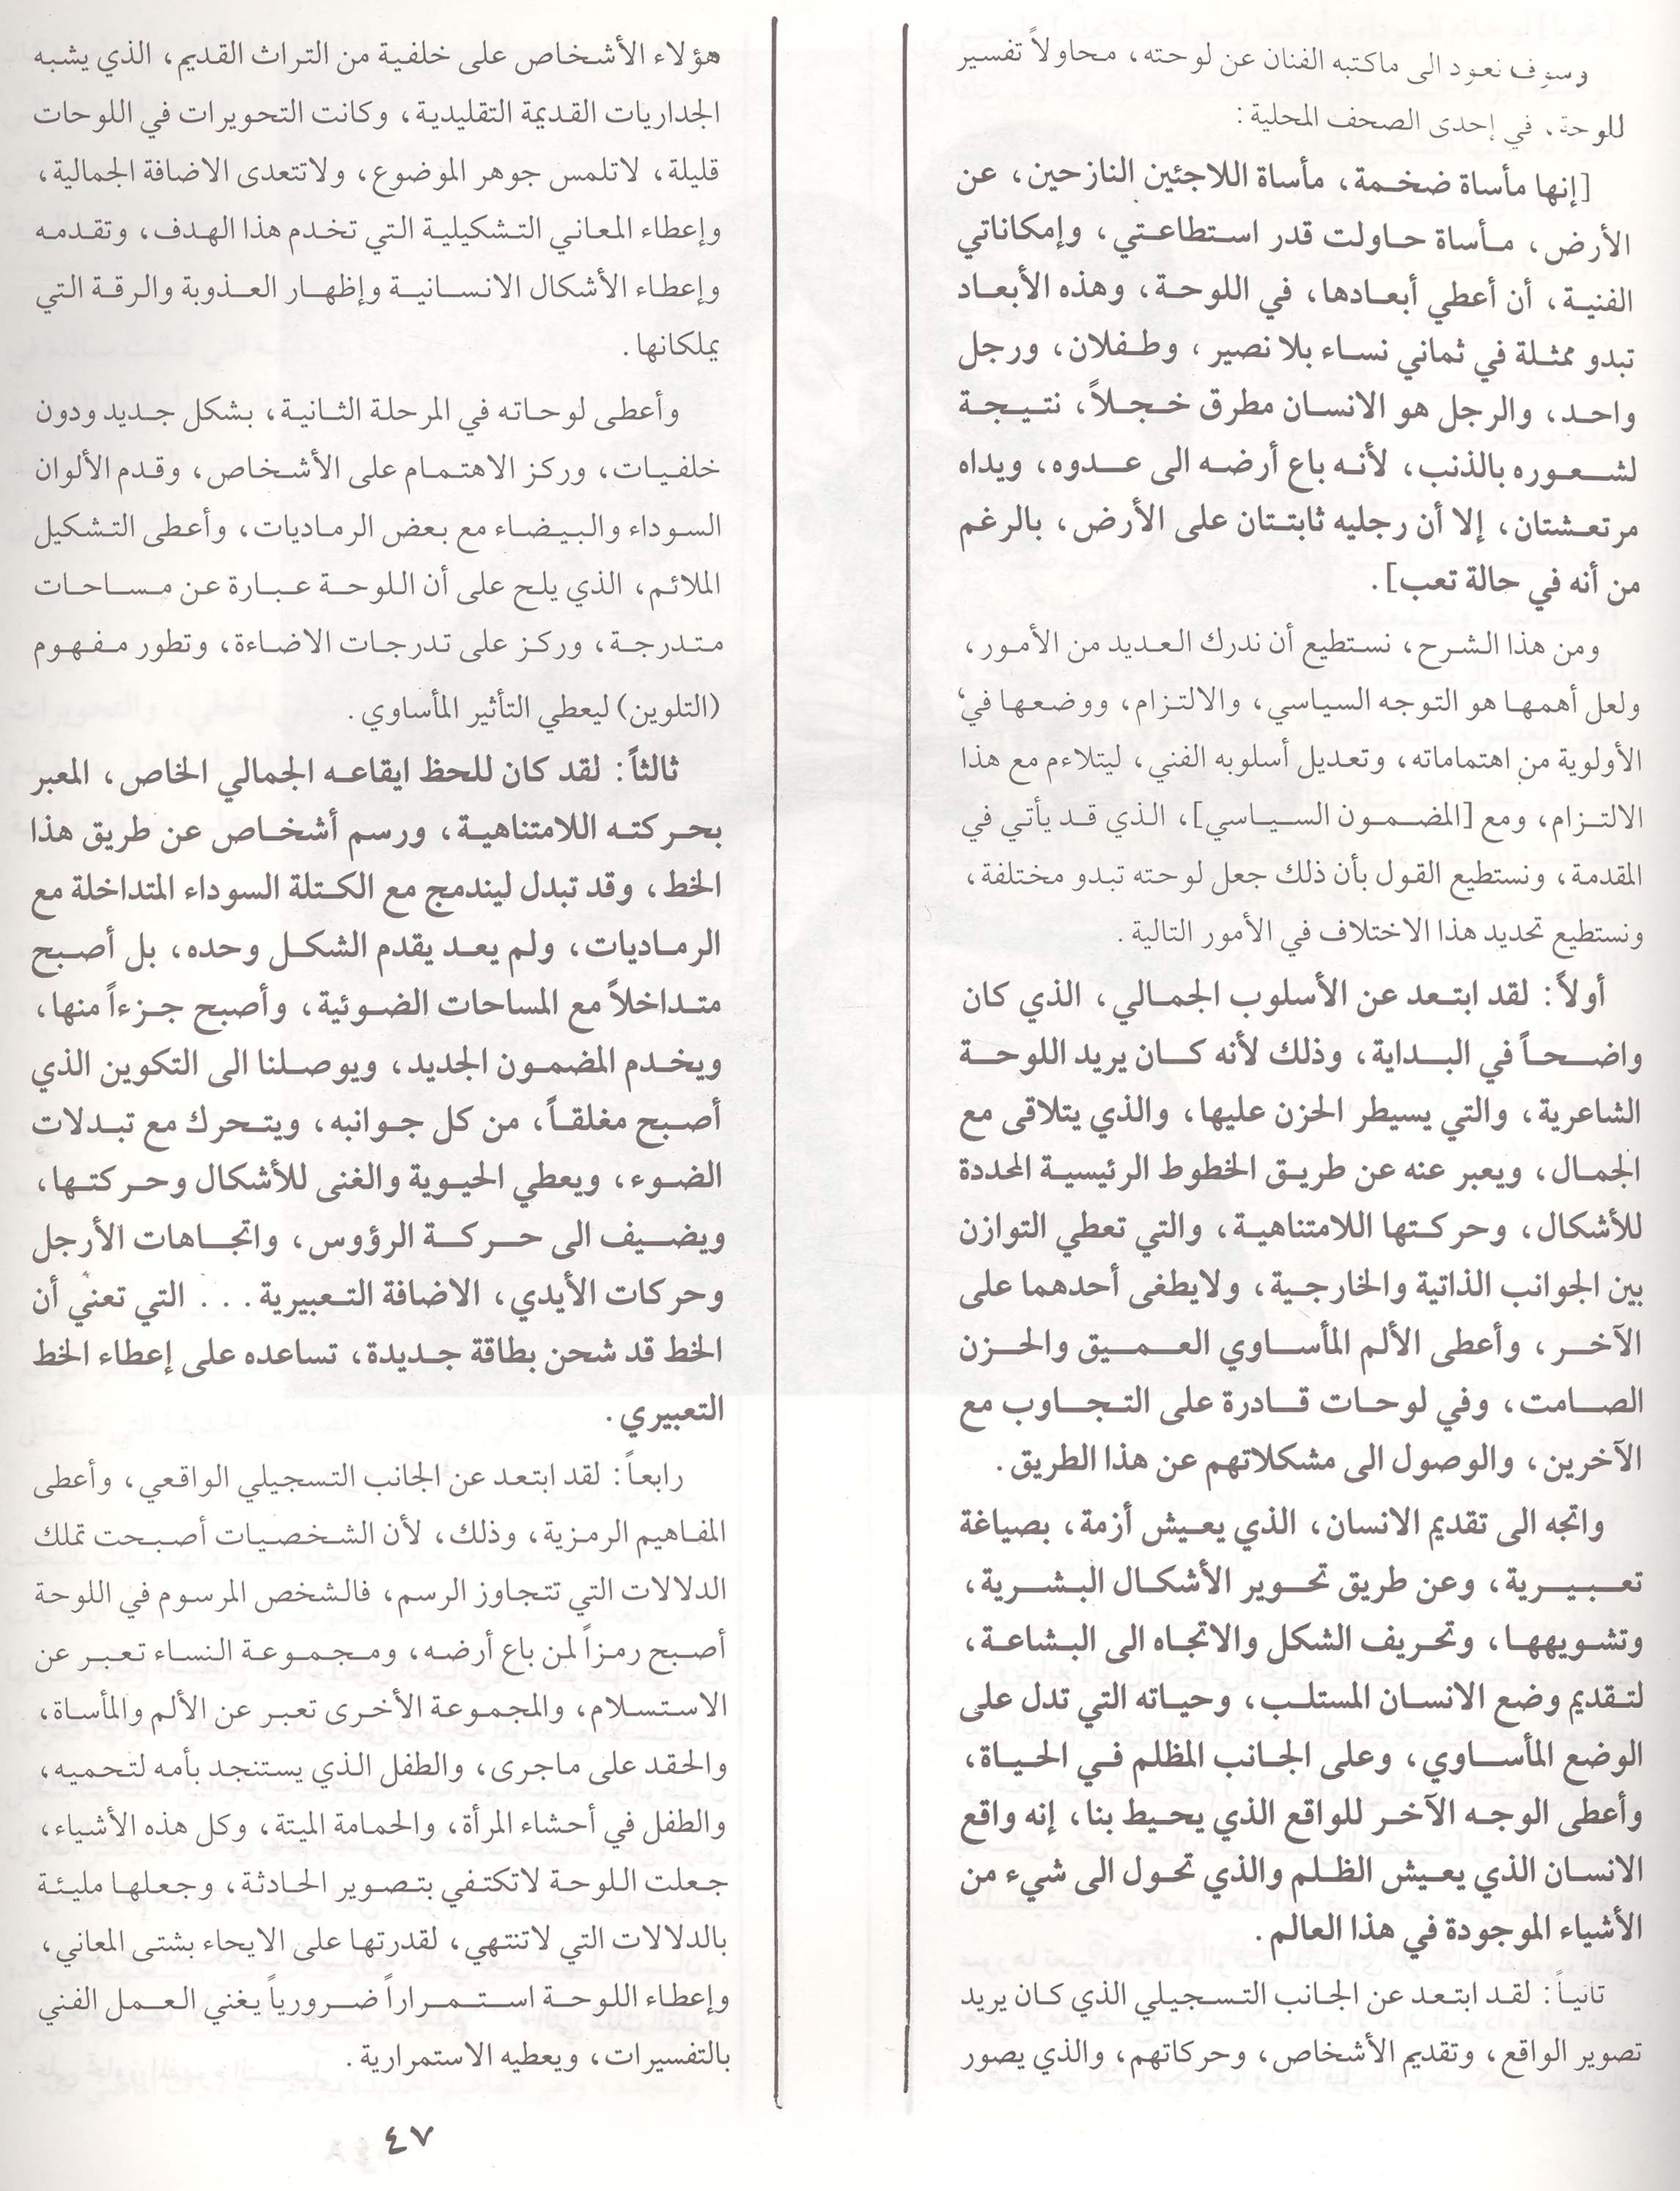 وسوف نعود الى ماكتبه الفنان عن لوحته، محاولاً تفسير
للوحة، في إحدى الصحف المحلية:
[إنها مأساة ضخمة، مأساة اللاجئين النازحين، عن
الأرض، مأساة حاولت قدر استطاعتي، وإمكاناتي
الفنية، أن أعطي أبعادها، في اللوحة، وهذه الأبعاد
تبدو ممثلة في ثماني نساء بلا نصير، وطفلان، ورجل
واحد، والرجل هو الانسان مطرق خجلاً، نتيجة
لشعوره بالذنب، لأنه باع أرضه الى عدوه، ويداه
مرتعشتان، إلا أن رجليه ثابتتان على الأرض، بالرغم
من أنه في حالة تعب].
ومن هذا الشرح، نستطيع أن ندرك العديد من الأمور،
ولعل أهمها هو التوجه السياسي، والالتزام، ووضعها في
الأولوية من اهتماماته، وتعديل أسلوبه الفني، ليتلاءم مع هذا
الالتزام، ومع [المضمون السياسي]، الذي قد يأتي في
المقدمة، ونستطيع القول بأن ذلك جعل لوحته تبدو مختلفة،
ونستطيع تحديد هذا الاختلاف في الأمور التالية.
أولاً: لقد ابتعد عن الأسلوب الجمالي، الذي كان
واضحاً في البداية، وذلك لأنه كان يريد اللوحة
الشاعرية، والتي يسيطر الحزن عليها، والذي يتلاقى مع
الجمال، ويعبر عنه عن طريق الخطوط الرئيسية المحددة
للأشكال، وحركتها اللامتناهية، والتي تعطي التوازن
بين الجوانب الذاتية والخارجية، ولايطغى أحدهما على
الآخر، وأعطى الألم المأساوي العميق والحزن
الصامت، وفي لوحات قادرة على التجاوب مع
الآخرين، والوصول الى مشكلاتهم عن هذا الطريق.
واتجه الى تقديم الانسان، الذي يعيش أزمة، بصياغة
تعبيرية، وعن طريق تحوير الأشكال البشرية،
وتشويهها، وتحريف الشكل والاتجاه الى البشاعة،
لتقديم وضع الانسان المستلب، وحياته التي تدل على
الوضع المأساوي، وعلى الجانب المظلم في الحياة،
وأعطى الوجه الآخر للواقع الذي يحيط بنا، إنه واقع
الانسان الذي يعيش الظلم والذي تحول الى شيء من
الأشياء الموجودة في هذا العالم.
ثانياً: لقد ابتعد عن الجانب التسجيلي الذي كان يريد
تصوير الواقع، وتقديم الأشخاص، وحركاتهم، والذي يصور
هؤلاء الأشخاص على خلفية من التراث القديم، الذي يشبه
الجداريات القديمة التقليدية، وكانت التحويرات في اللوحات
قليلة، لاتلمس جوهر الموضوع، ولاتتعدى الاضافة الجمالية،
وإعطاء المعاني التشكيلية التي تخدم هذا الهدف، وتقدمه
وإعطاء الأشكال الانسانية وإظهار العذوبة والرقة التي
يملكانها.
وأعطى لوحاته في المرحلة الثانية، بشكل جديد ودون
خلفيات، وركز الاهتمام على الأشخاص، وقدم الألوان
السوداء والبيضاء مع بعض الرماديات، وأعطى التشكيل
الملائم، الذي يلح على أن اللوحة عبارة عن مساحات
متدرجة، وركز على تدرجات الاضاءة، وتطور مفهوم
(التلوين) ليعطي التأثير المأساوي.
ثالثاً: لقد كان للحظ ايقاعه الجمالي الخاص، المعبر
بحركته اللامتناهية، ورسم أشخاص عن طريق هذا
الخط، وقد تبدل ليندمج مع الكتلة السوداء المتداخلة مع
الرماديات، ولم يعد يقدم الشكل وحده، بل أصبح
متداخلاً مع المساحات الضوئية، وأصبح جزءاً منها،
ويخدم المضمون الجديد، ويوصلنا الى التكوين الذي
أصبح مغلقاً، من كل جوانبه، ويتحرك مع تبدلات
الضوء، ويعطي الحيوية والغنى للأشكال وحركتها،
ويضيف الى حركة الرؤوس، واتجاهات الأرجل
وحركات الأيدي، الاضافة التعبيرية... التي تعني أن
الخط قد شحن بطاقة جديدة، تساعده على إعطاء الخط
التعبيري.
رابعاً: لقد ابتعد عن الجانب التسجيلي الواقعي، وأعطى
المفاهيم الرمزية، وذلك، لأن الشخصيات أصبحت تملك
الدلالات التي تتجاوز الرسم، فالشخص المرسوم في اللوحة
أصبح رمزاً لمن باع أرضه، ومجموعة النساء تعبر عن
الاستسلام، والمجموعة الأخرى تعبر عن الألم والمأساة،
والحقد على ماجرى، والطفل الذي يستنجد بأمه لتحميه،
والطفل في أحشاء المرأة، والحمامة الميتة، وكل هذه الأشياء،
جعلت اللوحة لاتكتفي بتصوير الحادثة، وجعلها مليئة
بالدلالات التي لاتنتهي، لقدرتها على الايحاء بشتى المعاني،
وإعطاء اللوحة استمراراً ضرورياً يغني العمل الفني
بالتفسيرات، ويعطيه الاستمرارية.
٤٧